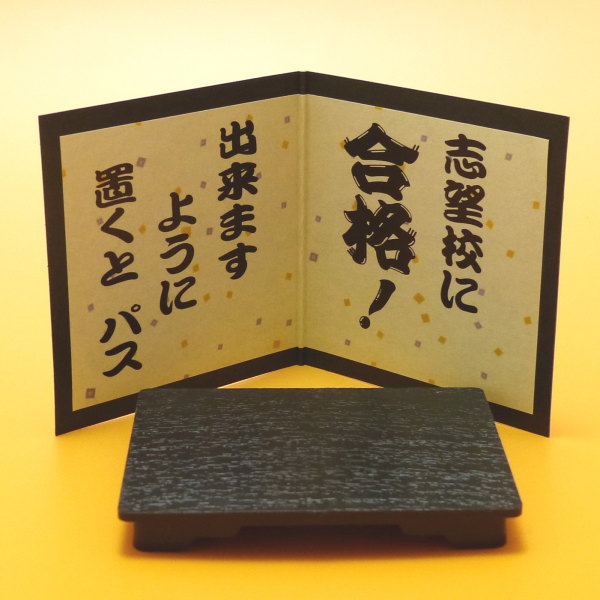 志望校に
合格!
出来ます
ように
置くと パス